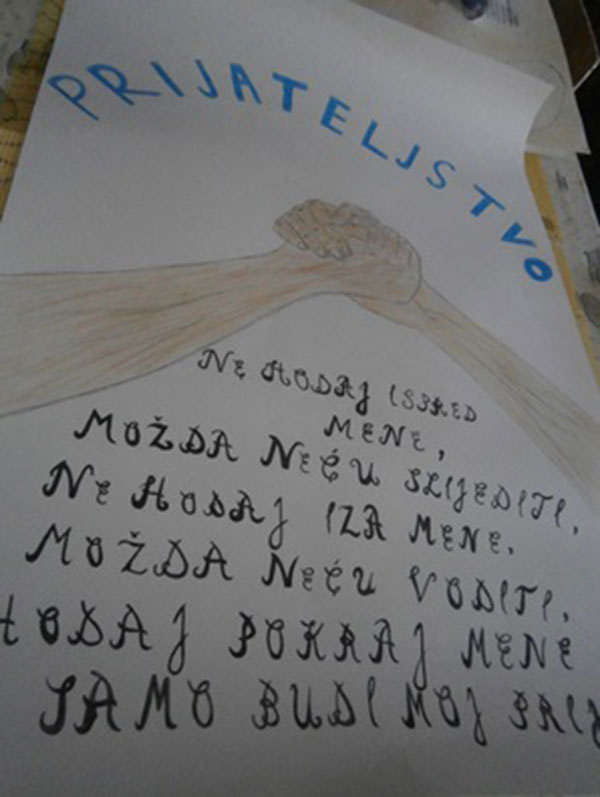 PRIJATELJSTVO
NE HODAJ ISPRED
MENE,
MOŽDA NEĆU SLIJEDITI.
NE HODAJ IZA MENE.
MOŽDA NEĆU VODITI.
HODAJ POKRAJ MENE
SAMO BUDI MOJ PRIJ